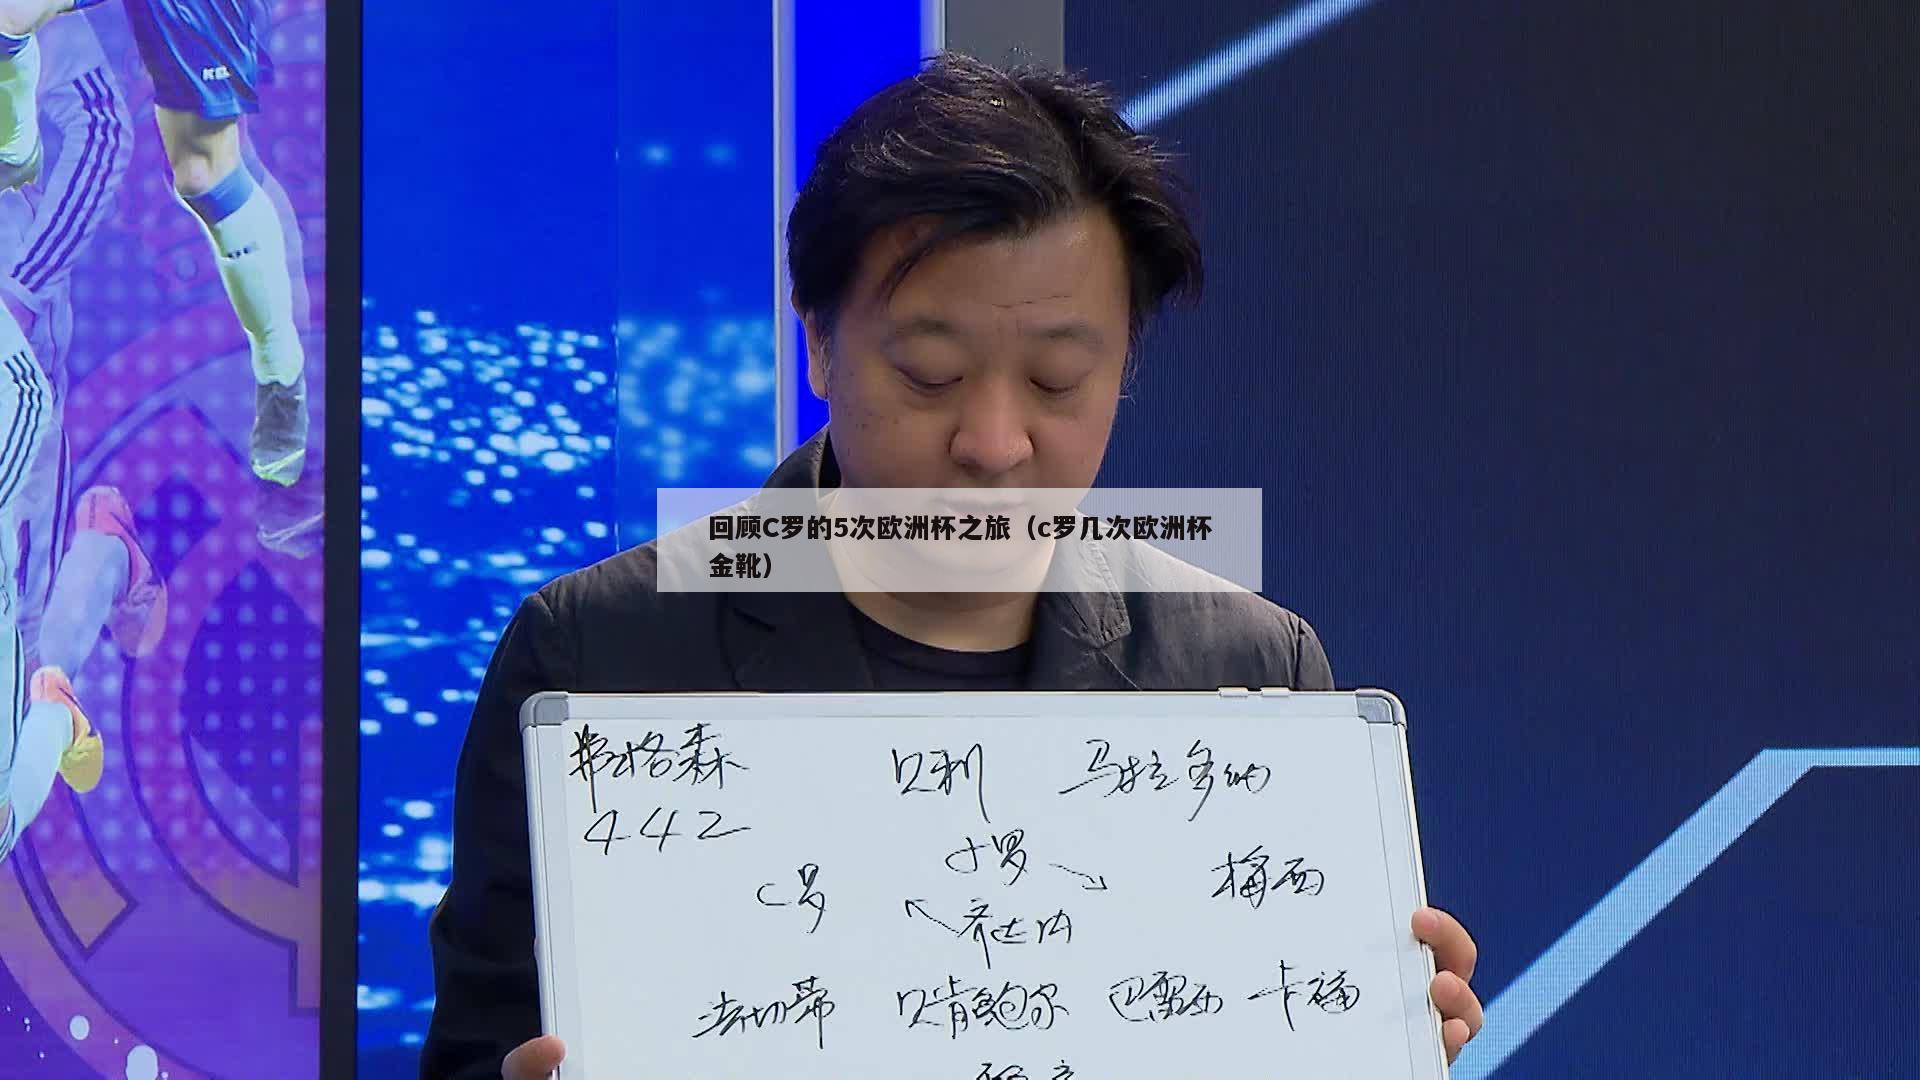 回顾C罗的5次欧洲杯之旅（c罗几次欧洲杯
金靴）
弗格森 贝利 马拉多纳
442
小罗
C罗 梅西
齐达内
法切蒂 贝肯鲍尔 巴雷西 卡福